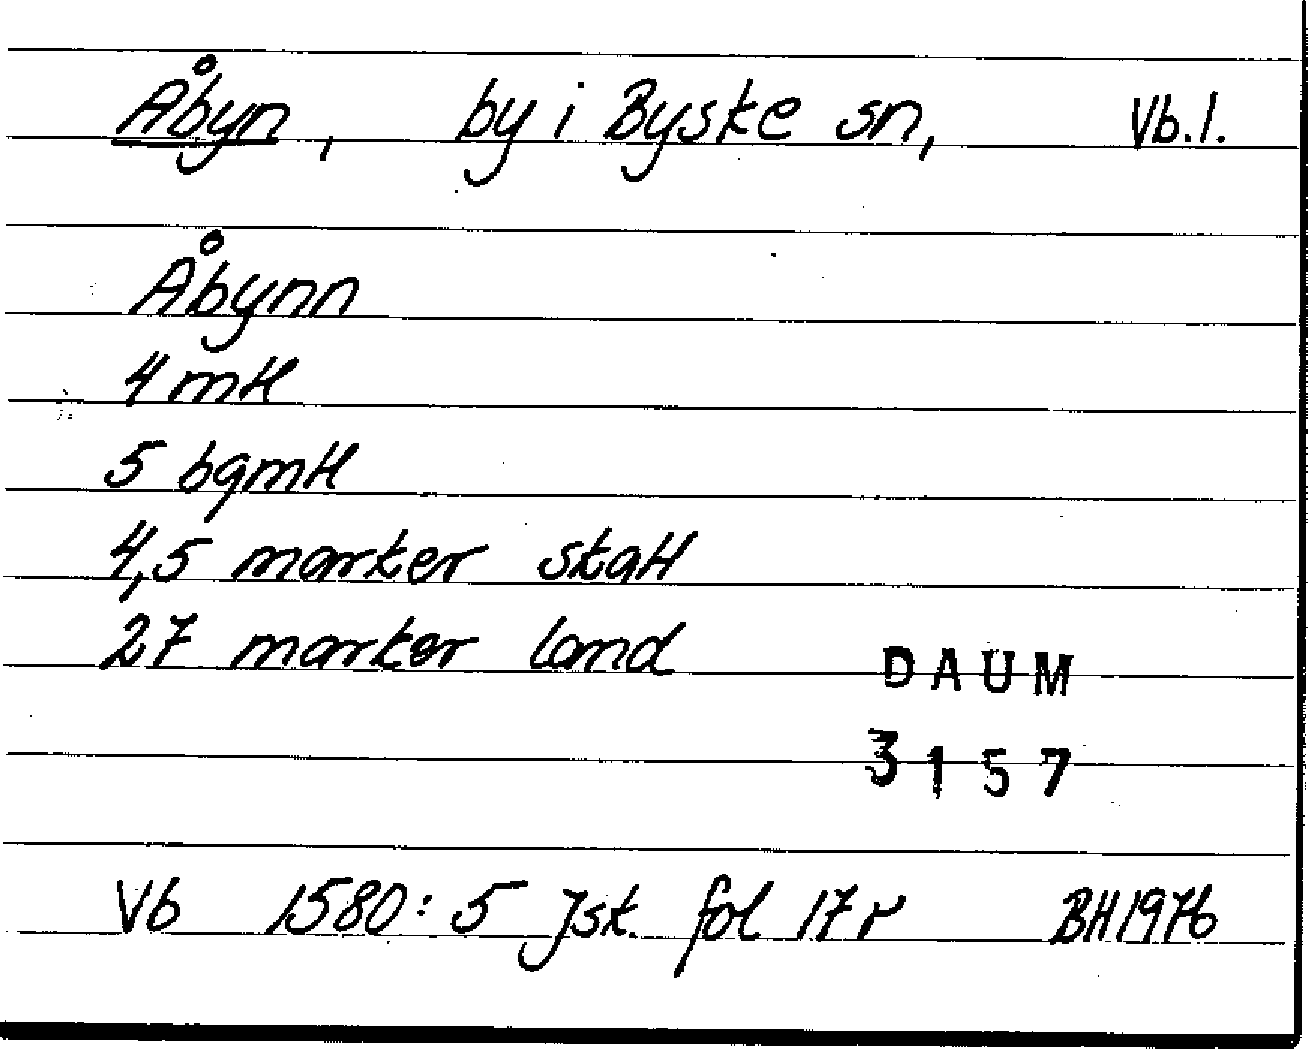 Åbyn, by i Byske sn, Vb.l.
Åbynn
4 mtl
5 bgmtl
4,5 marker skatt
27 marker land
DAUM
3157
Vb 1580: 5 Jsk. fol 17 r BH 1976